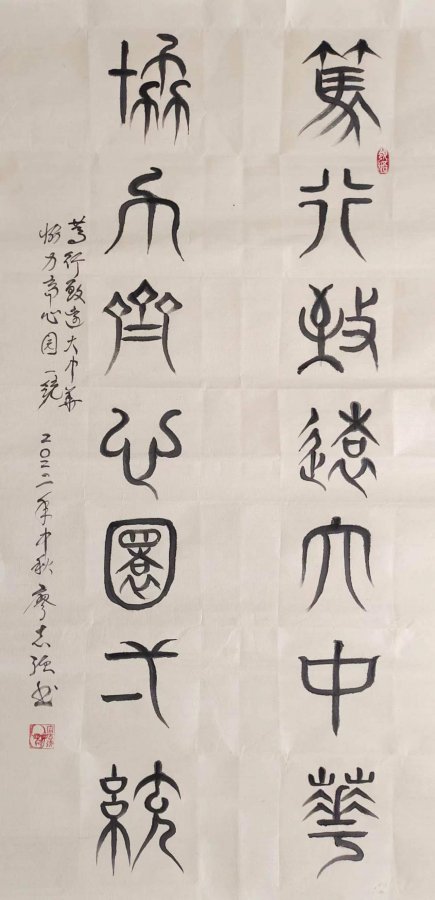 篤行致遠大中華
協力齊心圜弌統
篤行致遠大中華
協力齊心圆一統 二〇二二年中秋 廖志强书